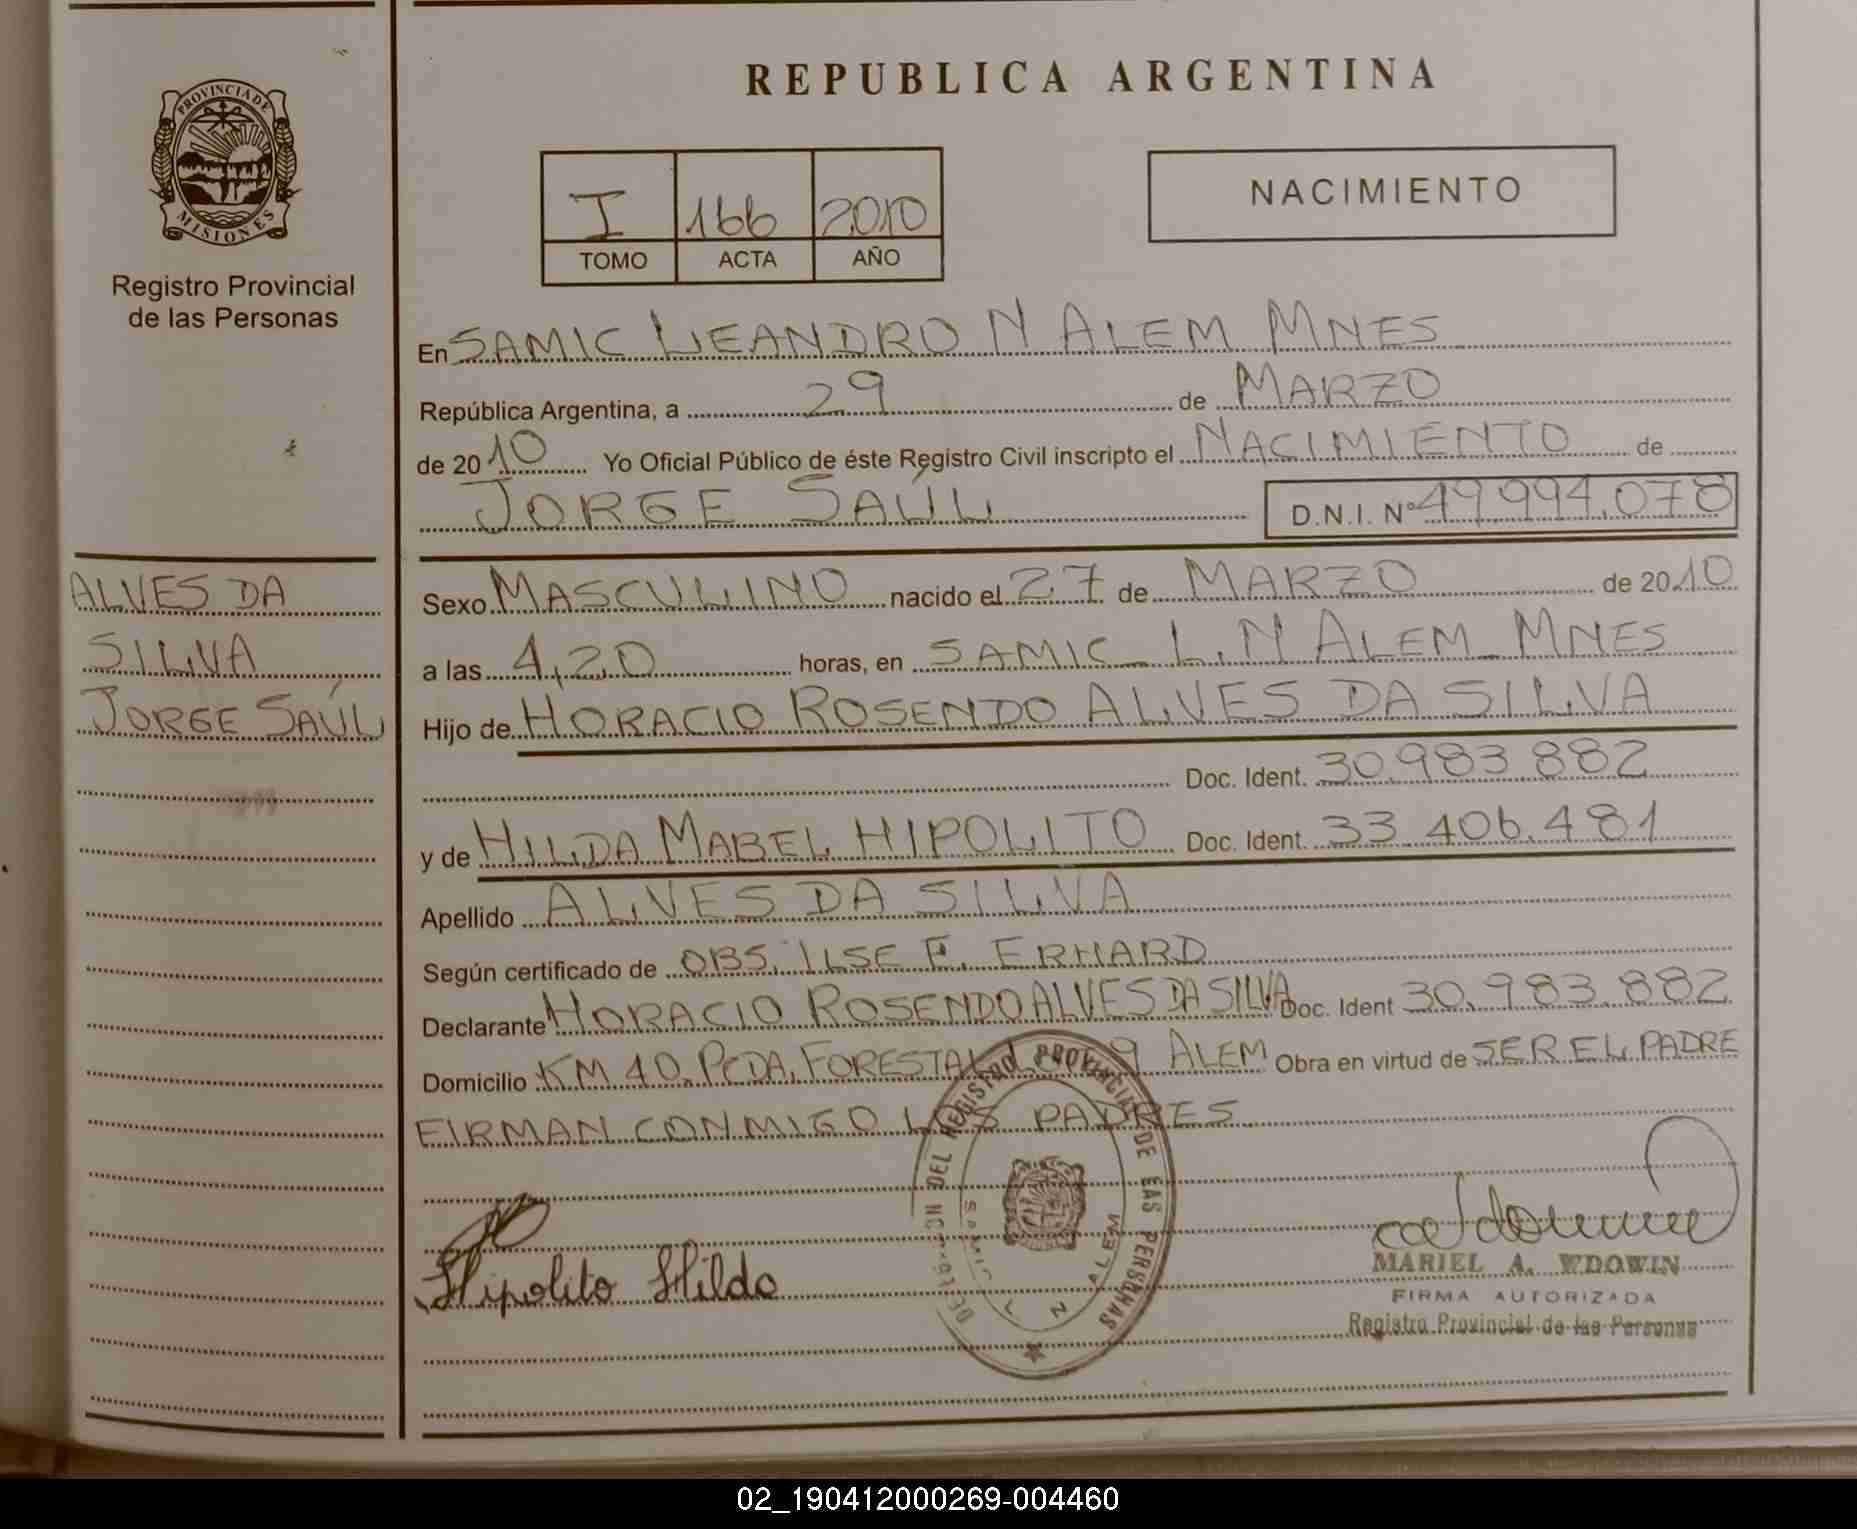 REPUBLICA ARGENTINA
PROVINCIA DE
MISIONES
Registro Provincial
de las Personas
I 166 2010
TOMO ACTA AÑO
NACIMIENTO
En SAMIC LEANDRO N ALEM MNES
República Argentina, a 29 de MARZO
de 2010 Yo Oficial Público de éste Registro Civil inscripto el NACIMIENTO de
JORGE SAÚL D.N.I. Nº 49.994.078
ALVES DA
SILVA
JORGE SAÚL
Sexo MASCULINO nacido el 27 de MARZO de 2010
a las 4,20 horas, en SAMIC L.N ALEM MNES
Hijo de HORACIO ROSENDO ALVES DA SILVA
Doc. Ident. 30.983.882
y de HILDA MABEL HIPOLITO Doc. Ident. 33.406.481
Apellido ALVES DA SILVA
Según certificado de OBS. ILSE F. ERHARD
Declarante HORACIO ROSENDO ALVES DA SILVA Doc. Ident 30.983.882
Domicilio KM 40. PCDA. FORESTAL 9 ALEM Obra en virtud de SER EL PADRE
FIRMAN CONMIGO LOS PADRES
DEL REGISTRO PROVINCIAL DE LAS PERSONAS
SAMIC L N ALEM
Hipolito Hilda
MARIEL A. WDOWIN
FIRMA AUTORIZADA
Registro Provincial de las Personas
02_190412000269-004460